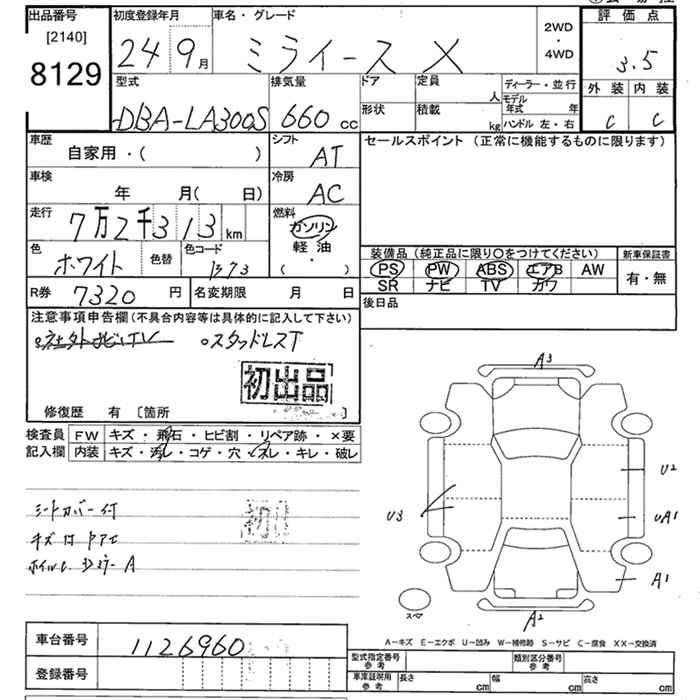 出品番号 初度登録年月 車名・グレード 2WD・4WD 評価点
[2140]
8129 24 9月 ミライース X 3.5
型式 排気量 ドア 定員 人 ディーラー・並行 外装 内装
DBA-LA300S 660cc 形状 積載 kg モデル年式 年 ハンドル 左・右 C C
車歴 シフト セールスポイント（正常に機能するものに限ります）
自家用・（ ） AT
車検 冷房
年 月（ 日） AC
走行 燃料
7万2千313km ガソリン
軽油
・
（ ）
色 ホワイト 色替 色コード
装備品（純正品に限り○をつけてください） 新車保証書
PS PW ABS エアB AW 有・無
SR ナビ TV カワ
R券 7320円 名変期限 月 日 後日品
注意事項申告欄（不具合内容等は具体的に記入して下さい）
○スタッドレスT
初出品
修復歴 有 〔箇所 〕
検査員 FW キズ・飛石・ヒビ割・リペア跡・×要
記入欄 内装 キズ・汚レ・コゲ・穴・スレ・キレ・破レ
A3
U2
U3
UA1
A1
A2
シートカバー付
初
A-キズ E-エクボ U-凹み W-補修跡 S-サビ C-腐食 XX-交換済
車台番号 1126960
型式指定番号 参考 類別区分番号 参考
登録番号
車庫証明用 参考 長さ cm 幅 cm 高さ cm